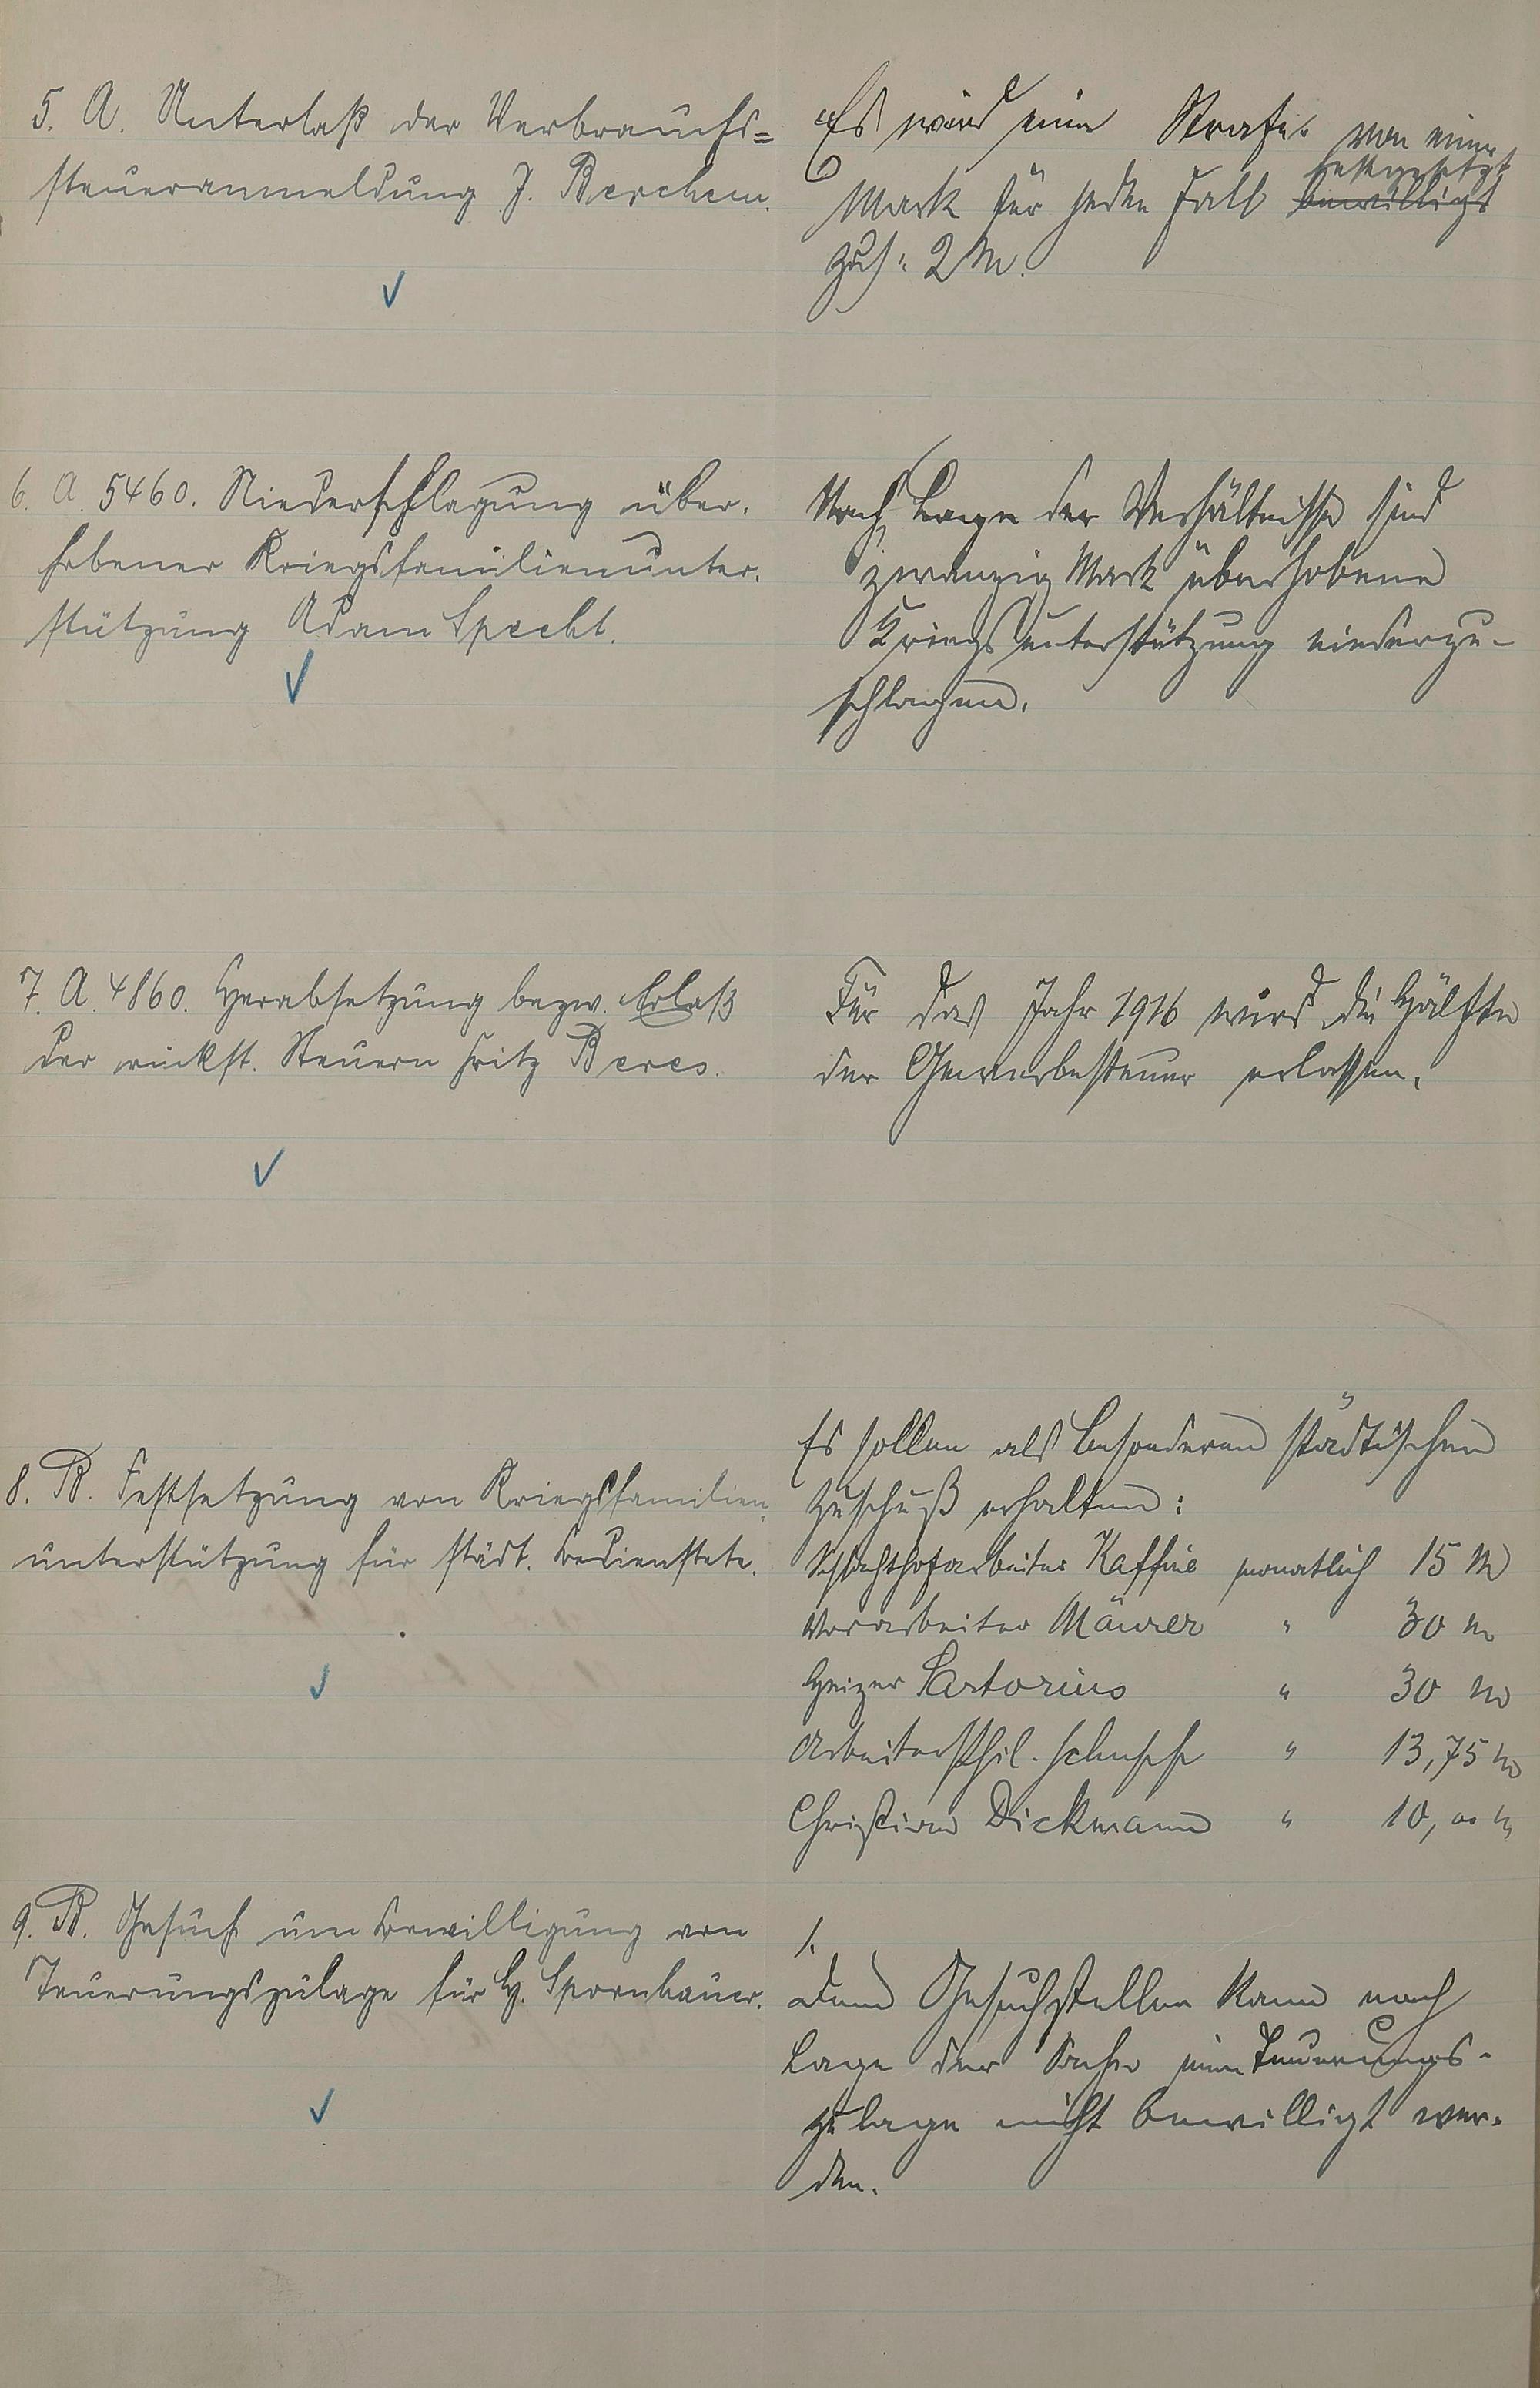 5. A. Unterlaß der Verbrauchs=
steueranmeldung J. Berchem.
Es wird eine Strafe von einer
Mark für jeden Fall bewilligt festgesetzt
zus: 2 M.
6. A. 5460. Niederschlagung über-
hobener Kriegsfamilienunter-
stützung Adam Specht.
Nach Lage der Verhältnisse sind
zwanzig Mark überhobene
Kriegsunterstützung niederzu-
schlagen.
7. A. 4860. Herabsetzung bezw. Erlaß
der rückst. Steuern Fritz Beres.
Für das Jahr 1916 wird die Hälfte
der Gewerbesteuer erlassen.
8. B. Festsetzung von Kriegsfamilien-
unterstützung für städt. Bedienstete.
Es sollen als besonderen städtischen
Zuschuß erhalten:
Schlachthofarbeiter Kaffine monatlich 15 M
Vorarbeiter Mäurer " 30 M
Heizer Sartorius " 30 M
Arbeiter Phil. " 13,75 M
Christian Dickmann " 10,00 M
9. B. Gesuch um Bewilligung von
Teuerungszulage für H. Spornhauer.
1.
Dem Gesuchsteller kann nach
Lage der Sache eine Teuerungs-
zulage nicht bewilligt wer-
den.